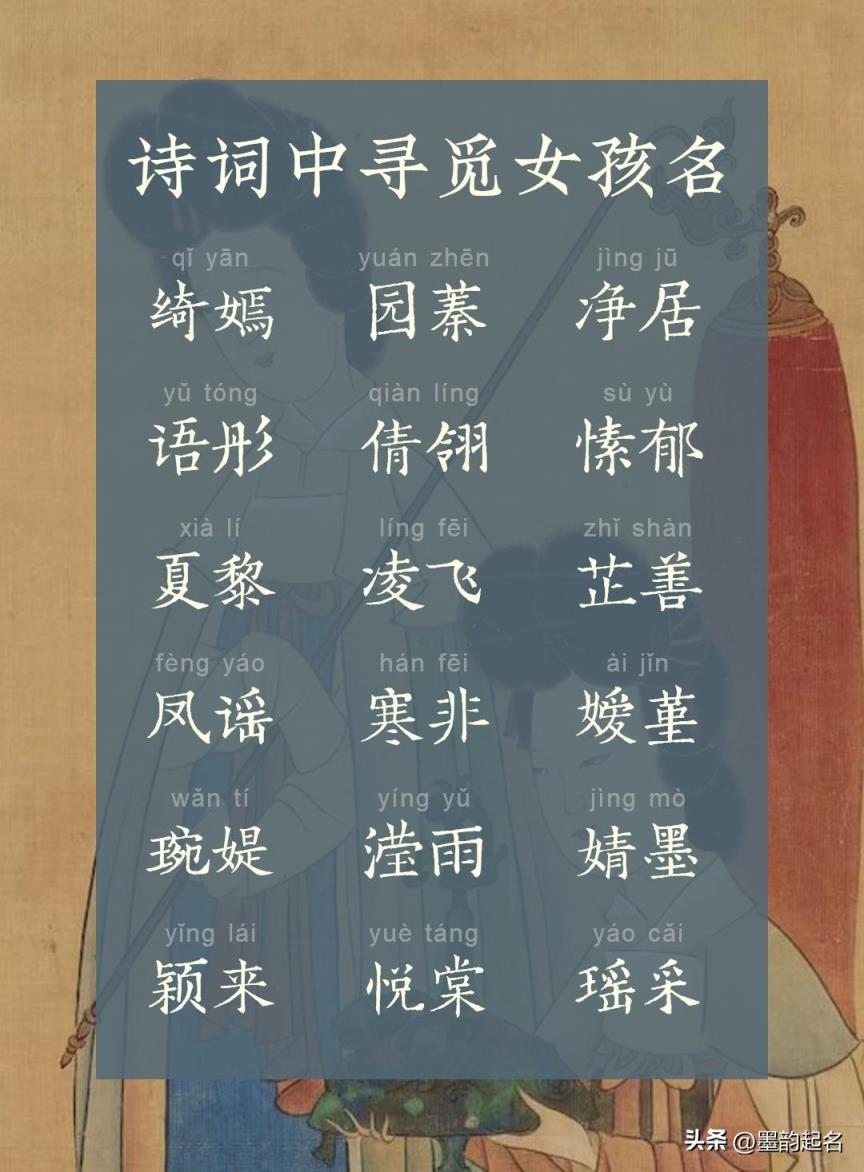 诗词中寻觅女孩名
qǐ yān yuán zhēn jìng jū
绮嫣 园蓁 净居
yǔ tóng qiàn líng sù yù
语彤 倩翎 愫郁
xià lí líng fēi zhǐ shàn
夏黎 凌飞 芷善
fèng yáo hán fēi ài jǐn
凤谣 寒非 嫒堇
wǎn tí yíng yǔ jìng mò
琬媞 滢雨 婧墨
yǐng lái yuè táng yáo cǎi
颖来 悦棠 瑶采
头条 @墨韵起名